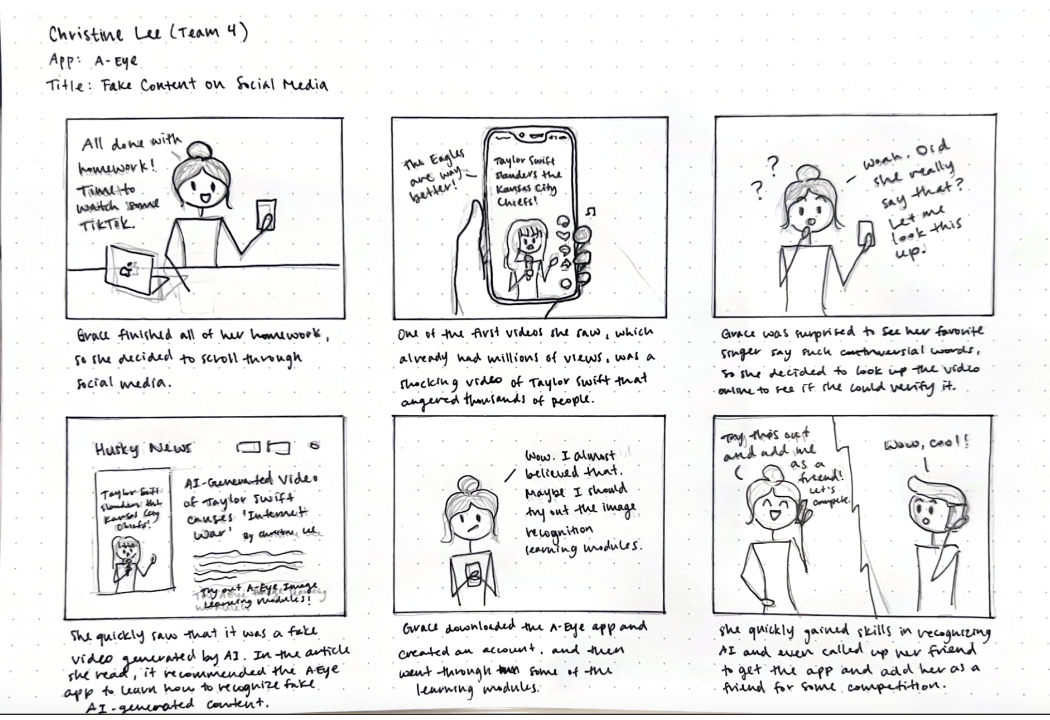 Christine Lee (Team 4)
App: A-Eye
Title: Fake Content on Social Media
All done with
homework!
Time to
watch some
TikTok.
Grace finished all of her homework,
so she decided to scroll through
social media.
The Eagles
are way
better!
Taylor Swift
slanders the
Kansas City
Chiefs!
One of the first videos she saw, which
already had millions of views, was a
shocking video of Taylor Swift that
angered thousands of people.
? ?
Woah. Did
she really
say that?
Let me
look this
up!
Grace was surprised to see her favorite
singer say such controversial words,
so she decided to look up the video
online to see if she could verify it.
Husky News
Taylor Swift
slanders the
Kansas City
Chiefs!
AI-Generated Video
of Taylor Swift
causes 'Internet
War'
By Christine Lee
Try out A-Eye Image
Learning Modules!
She quickly saw that it was a fake
video generated by AI. In the article
she read, it recommended the A-Eye
app to learn how to recognize fake
AI-generated content.
Wow. I almost
believed that.
Maybe I should
try out the image
recognition
learning modules.
Grace downloaded the A-Eye app and
created an account, and then
went through some of the
learning modules.
Try this out
and add me
as a
friend!
Let's
compete.
Wow, cool!
She quickly gained skills in recognizing
AI and even called up her friend
to get the app and add her as a
friend for some competition.